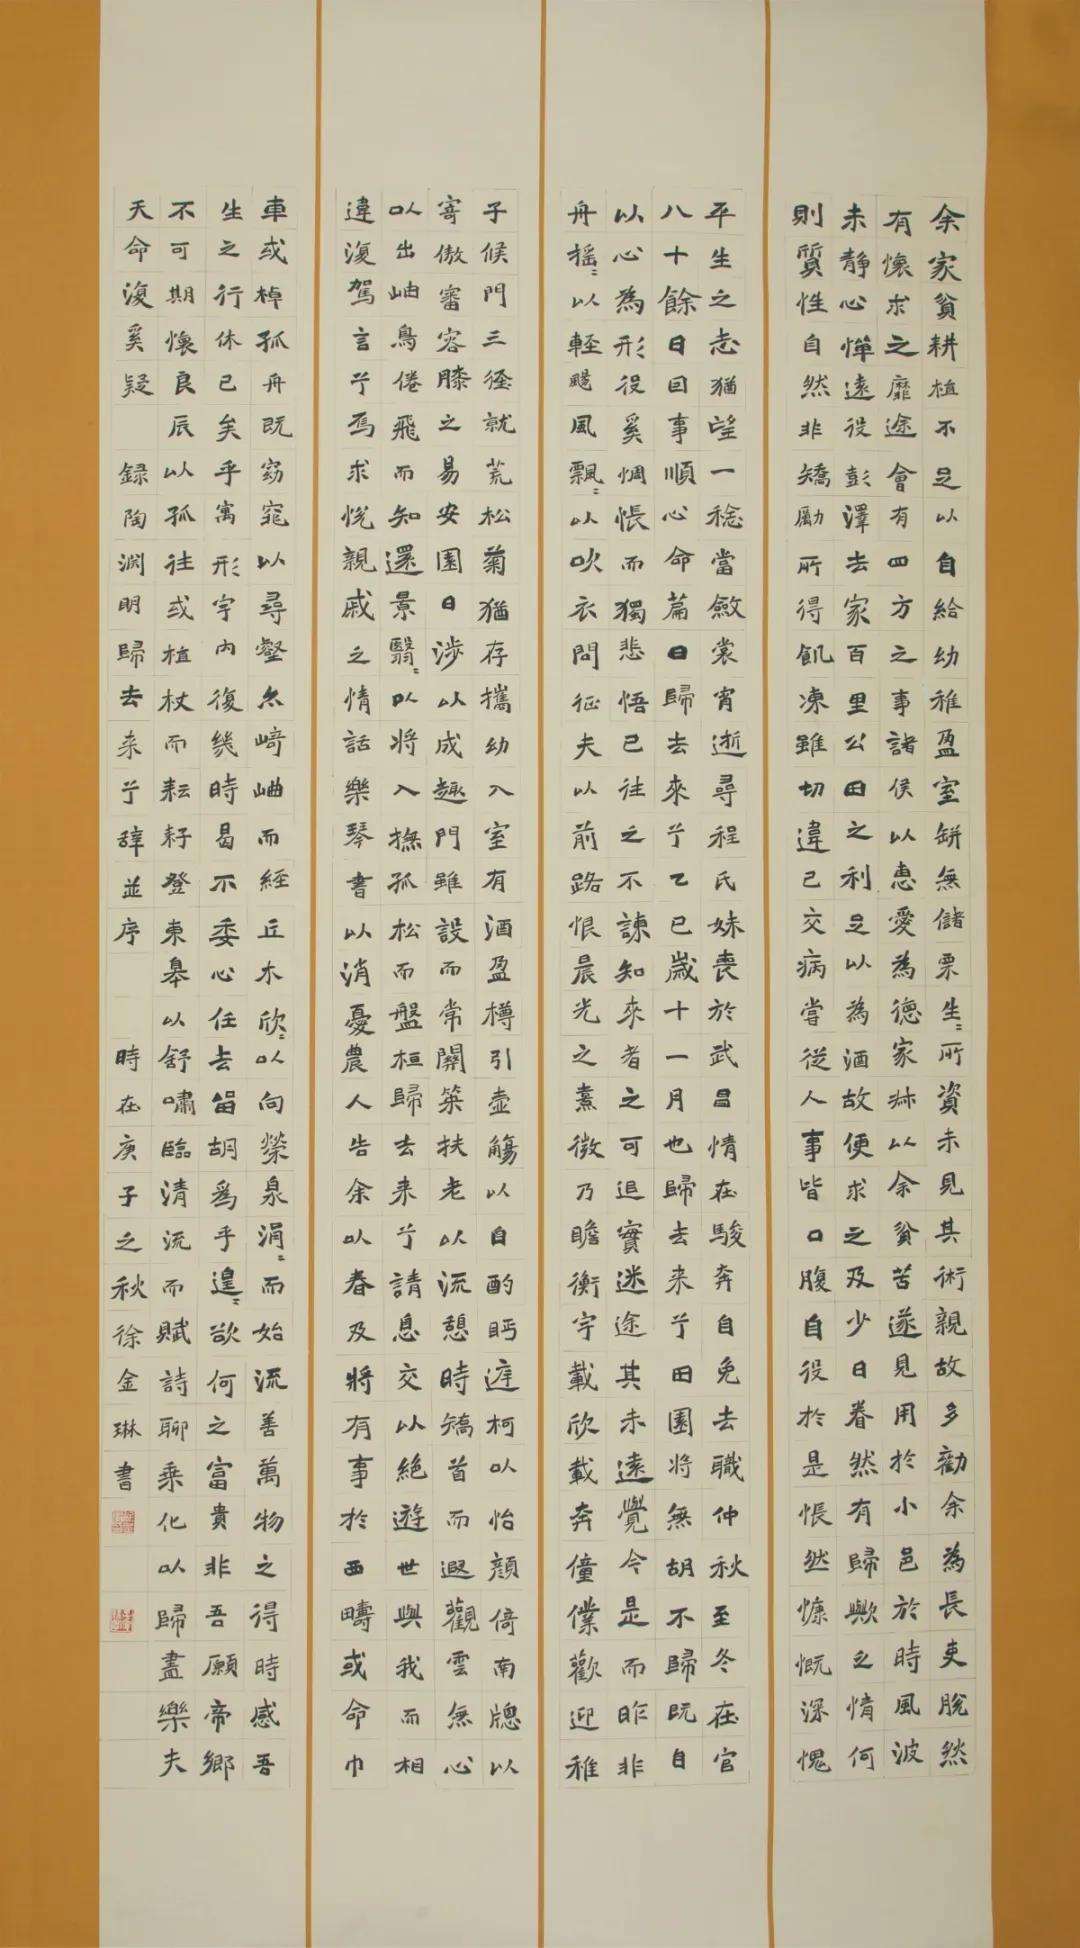 余家貧耕植不足以自給幼稚盈室缾無儲粟生〻所資未見其術親故多勸余為長吏脫然
有懷求之靡途會有四方之事諸侯以惠愛為德家叔以余貧苦遂見用於小邑於時風波
未靜心憚遠役彭澤去家百里公田之利足以為酒故便求之及少日眷然有歸歟之情何
則質性自然非矯勵所得飢凍雖切違己交病嘗從人事皆口腹自役於是悵然慷慨深愧
平生之志猶望一稔當斂裳宵逝尋程氏妹喪於武昌情在駿奔自免去職仲秋至冬在官
八十餘日因事順心命篇曰歸去來兮乙巳歲十一月也歸去来兮田園將無胡不歸既自
以心為形役奚惆悵而獨悲悟已往之不諫知來者之可追實迷途其未遠覺今是而昨非
舟摇〻以輕颺風飄〻以吹衣問征夫以前路恨晨光之熹微乃瞻衡宇載欣載奔僮僕歡迎稚
子候門三徑就荒松菊猶存攜幼入室有酒盈樽引壺觴以自酌眄庭柯以怡顏倚南牕以
寄傲審容膝之易安園日涉以成趣門雖設而常關策扶老以流憩時矯首而遐觀雲無心
以出岫鳥倦飛而知還景翳〻以將入撫孤松而盤桓歸去来兮請息交以絶遊世與我而相
違復駕言兮焉求悅親戚之情話樂琴書以消憂農人告余以春及將有事於西疇或命巾
車或棹孤舟既窈窕以尋壑亦崎岫而經丘木欣〻以向榮泉涓〻而始流善萬物之得時感吾
生之行休已矣乎寓形宇内復幾時曷不委心任去留胡為乎遑〻欲何之富貴非吾願帝鄉
不可期懷良辰以孤往或植杖而耘耔登東皋以舒嘯臨清流而賦詩聊乘化以歸盡樂夫
天命復奚疑 録陶淵明歸去来兮辞並序 時在庚子之秋徐金琳書